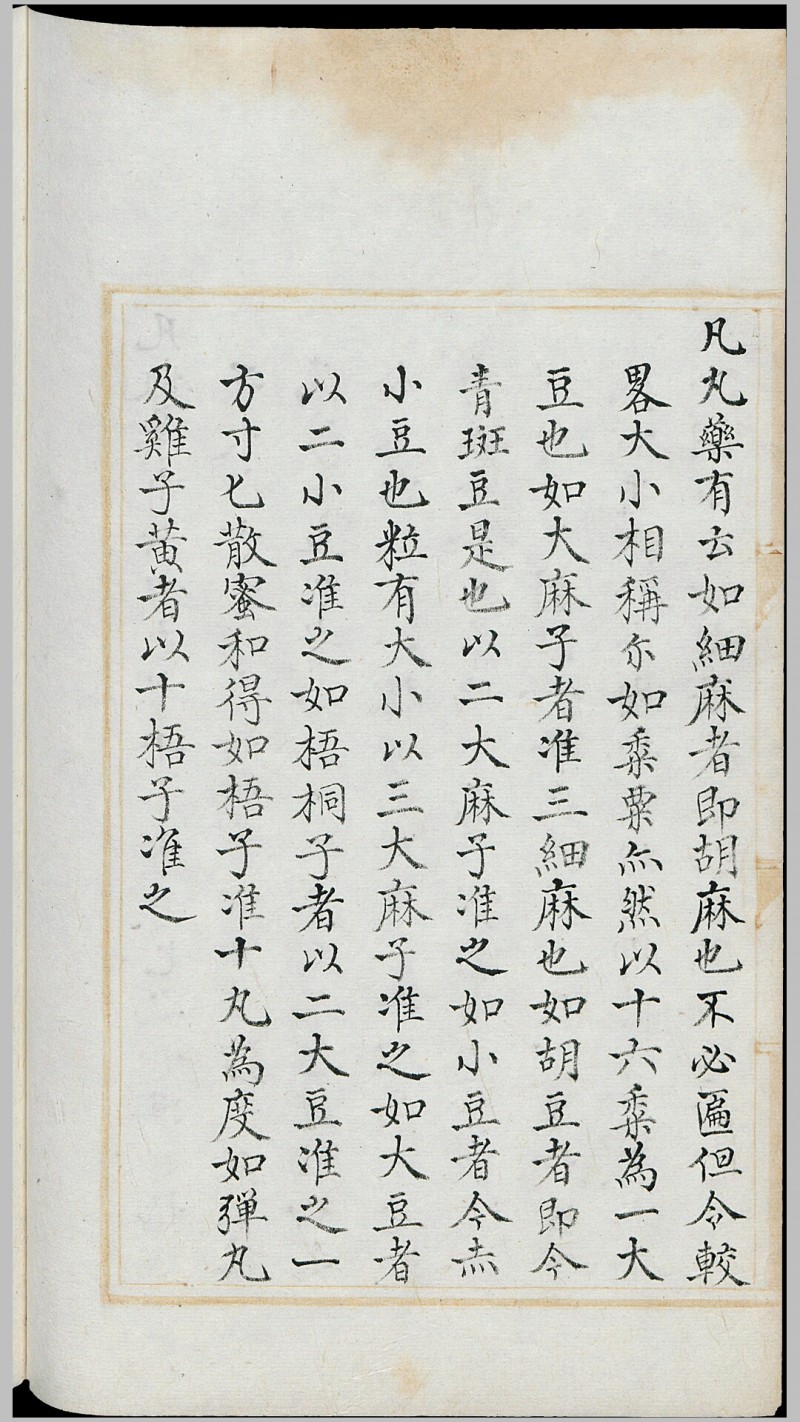 凡丸藥有云如細麻者即胡麻也不必匾但令較
畧大小相稱尓如黍粟亦然以十六黍為一大
豆也如大麻子者准三細麻也如胡豆者即今
青斑豆是也以二大麻子准之如小豆者今赤
小豆也粒有大小以三大麻子准之如大豆者
以二小豆准之如梧桐子者以二大豆准之一
方寸匕散蜜和得如梧子准十丸為度如弾丸
及雞子黄者以十梧子准之